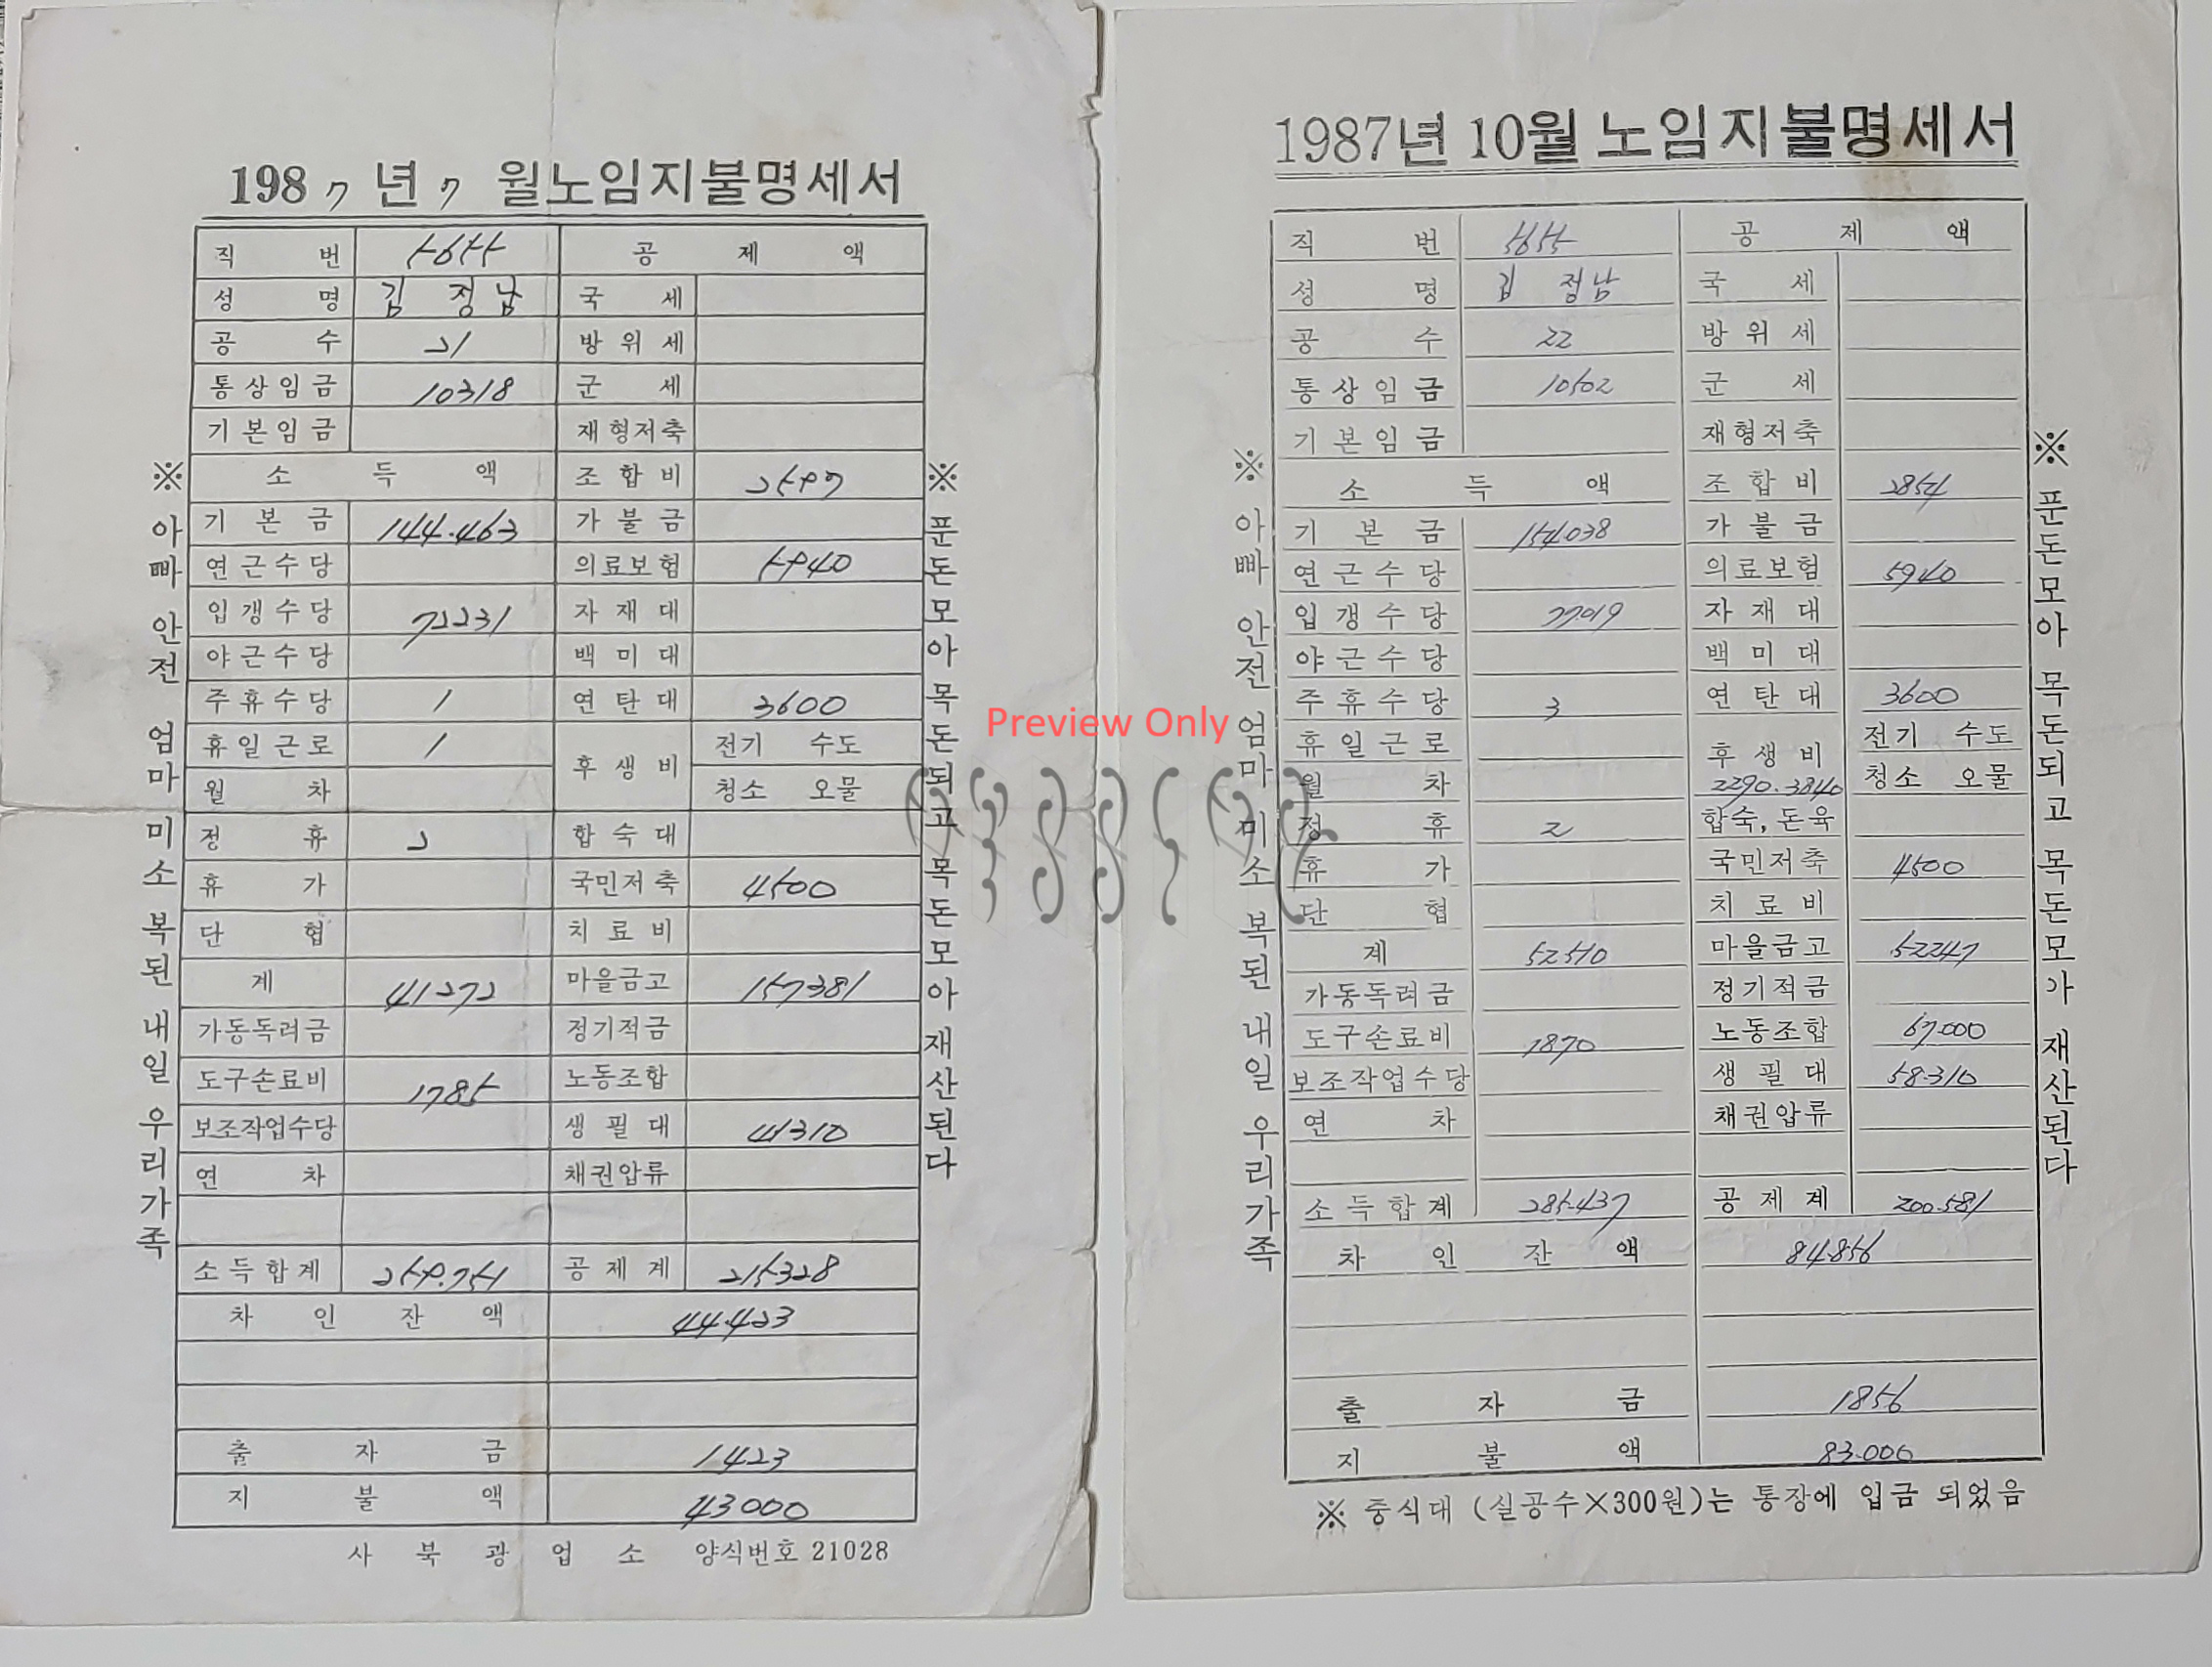 1987년 7월노임지불명세서
직 번 5655 공 제 액
성 명 김 정남 국 세
공 수 21 방 위 세
통상임금 10318 군 세
기본임금 재형저축
소 득 액 조 합 비 2597
기 본 금 144.463 가 불 금
연근수당 의료보험 5940
입갱수당 72231 자 재 대
야근수당 백 미 대
주휴수당 1 연 탄 대 3600
휴일근로 1 후 생 비 전기 수도
월 차 청소 오물
정 휴 2 합 숙 대
휴 가 국민저축 4500
단 협 치 료 비
계 41272 마을금고 157381
가동독려금 정기적금
도구손료비 1785 노동조합
보조작업수당 생 필 대 41310
연 차 채권압류
소득합계 259.751 공 제 계 215328
차 인 잔 액 44.423
출 자 금 1423
지 불 액 43000
사 북 광 업 소 양식번호 21028
※ 아빠 안전 엄마 미소 복된 내일 우리가족
※ 푼돈모아 목돈되고 목돈모아 재산된다
Preview Only
1987년 10월 노임지불명세서
직 번 5655 공 제 액
성 명 김 정남 국 세
공 수 22 방 위 세
통상임금 10502 군 세
기본임금 재형저축
소 득 액 조 합 비 2854
기 본 금 154.038 가 불 금
연근수당 의료보험 5940
입갱수당 77019 자 재 대
야근수당 백 미 대
주휴수당 3 연 탄 대 3600
휴일근로 후 생 비 전기 수도
월 차 2290.3840 청소 오물
정 휴 2 합숙, 돈육
휴 가 국민저축 4500
단 협 치 료 비
계 52510 마을금고 52247
가동독려금 정기적금
도구손료비 1870 노동조합 67.000
보조작업수당 생 필 대 58.310
연 차 채권압류
소득합계 285.437 공 제 계 200.581
차 인 잔 액 84.856
출 자 금 1856
지 불 액 83.000
※ 중식대 (실공수×300원)는 통장에 입금 되었음
※ 아빠 안전 엄마 미소 복된 내일 우리가족
※ 푼돈모아 목돈되고 목돈모아 재산된다